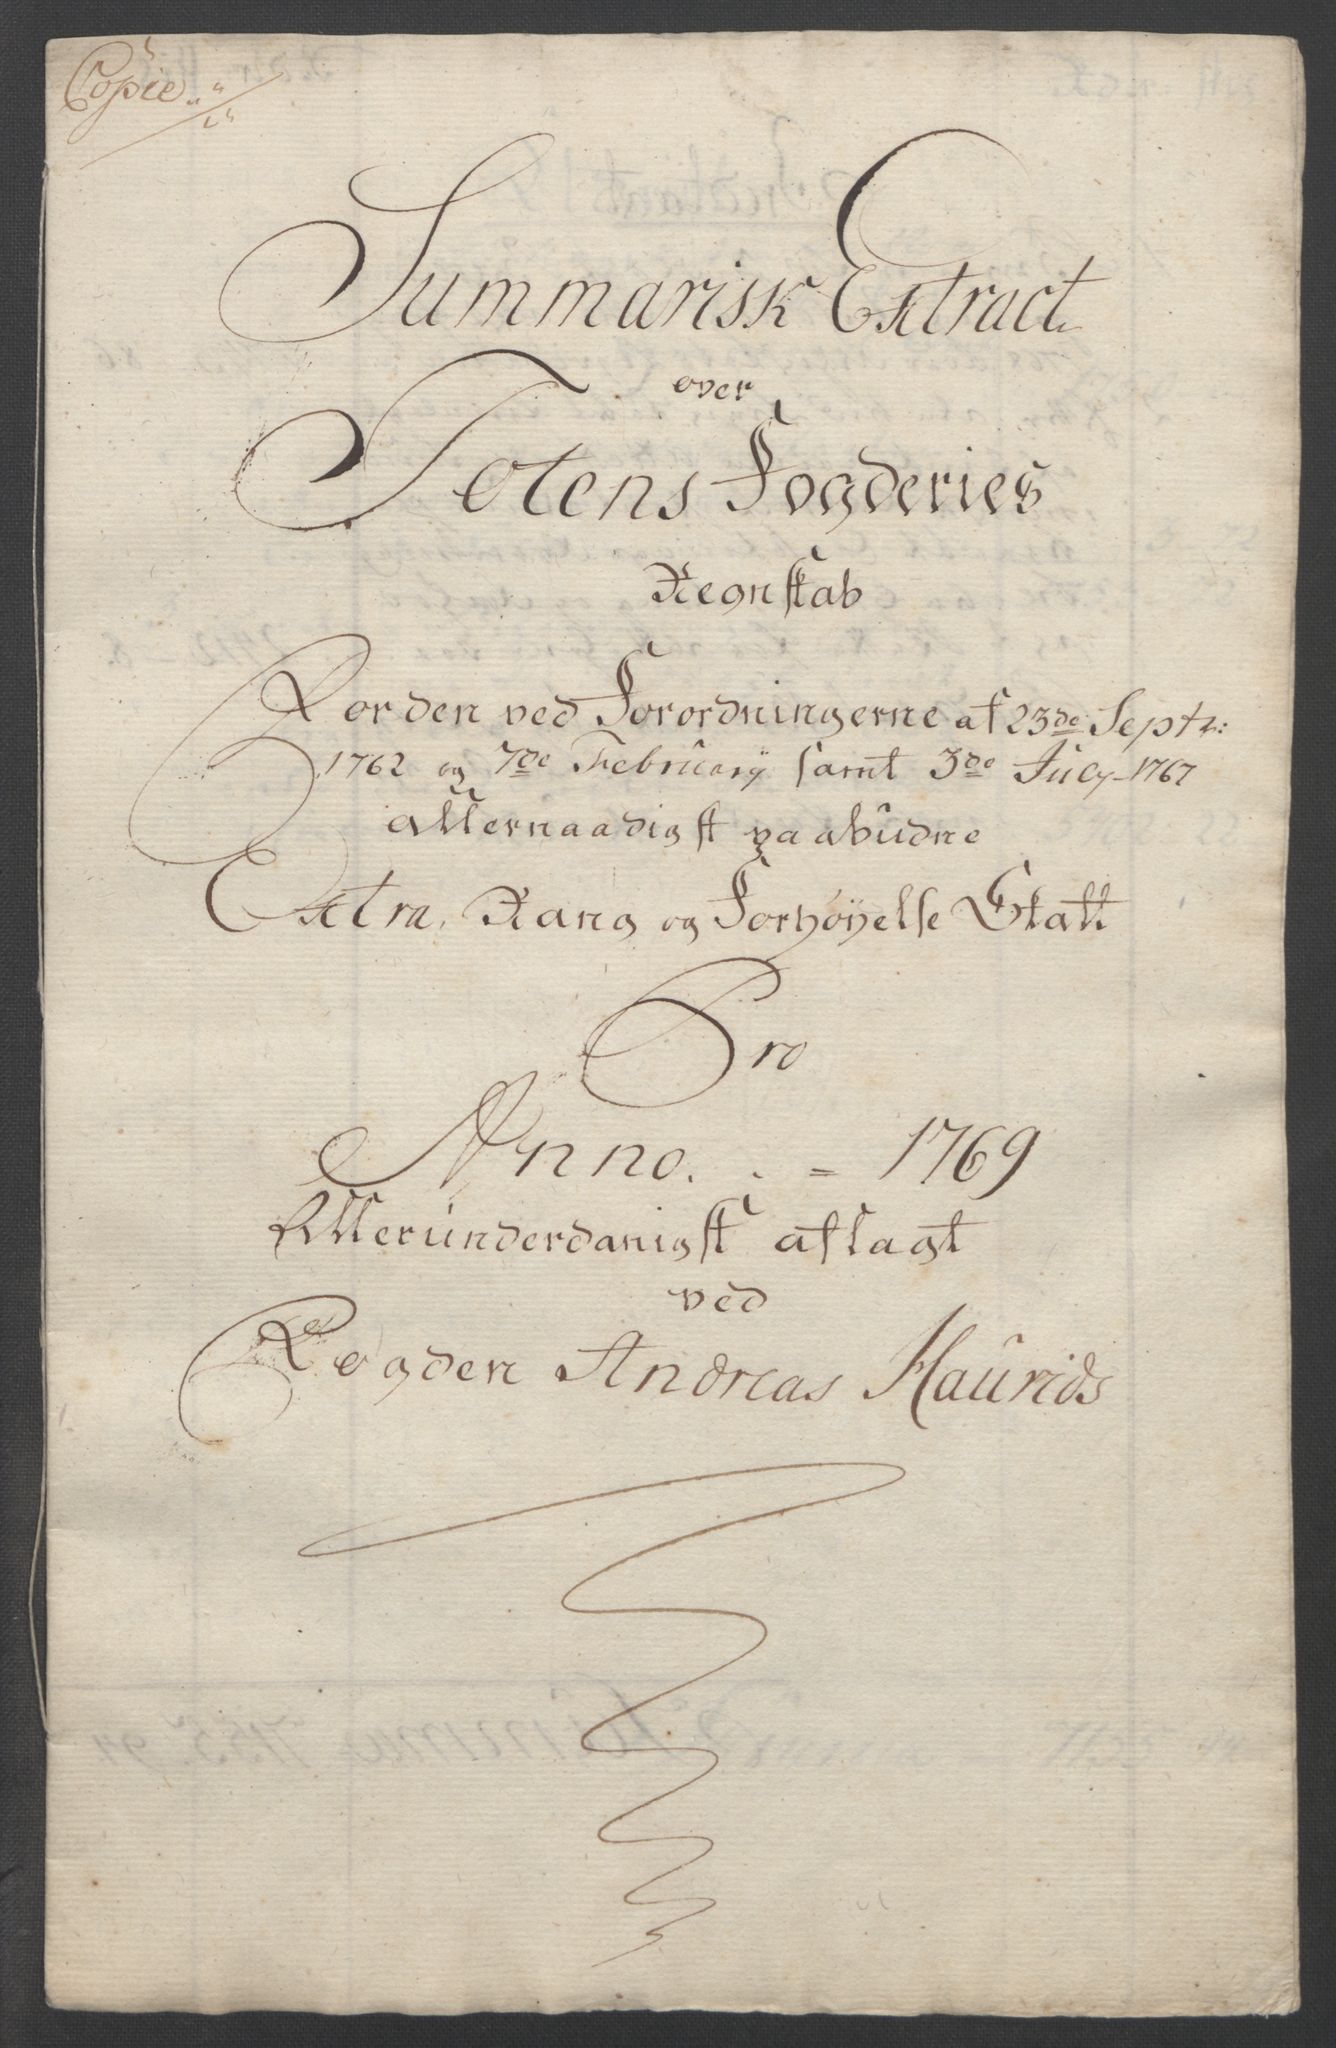 Copie
Summarisk Extract
over
Totens Fogderies
Regnskab
For den ved Forordningerne af 23de Septr:
1762 og 7de February samt 3de July 1767
allernaadigst paabudne
Extra, Rang og Forhøyelse Skatt
Pro
Anno. . = 1769
Allerunderdanigst aflagt
ved
Fogden Andreas Haurids